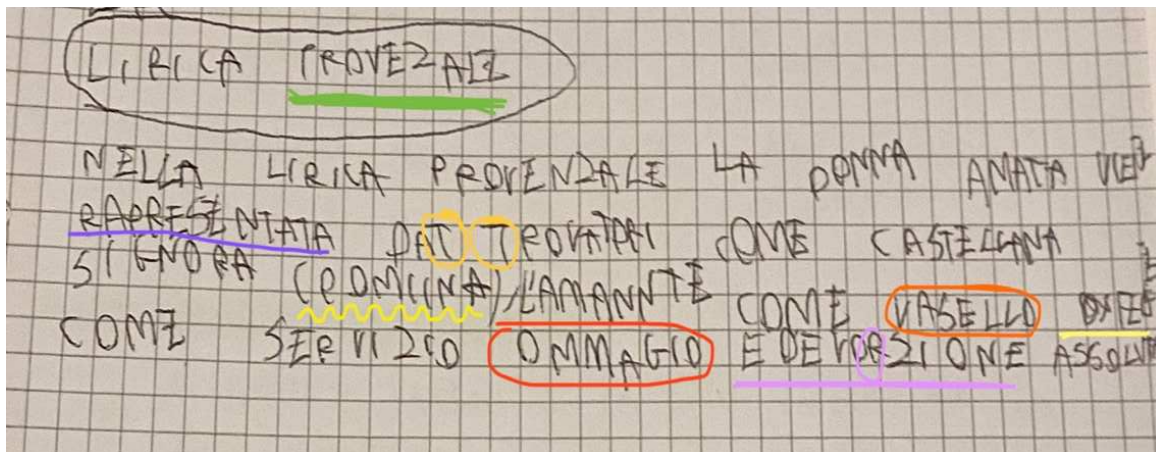 LIRICA PROVEZALE
NELLA LIRICA PROVENZALE LA DONNA AMATA VIEN
RAPRESENTATA DAT TROVATORI COME CASTELLANA
SIGNORA (DOMIINA), L'AMANNTE COME VASELLO
COME SERVIZIO OMMAGIO E DEVORZIONE ASSOLUT